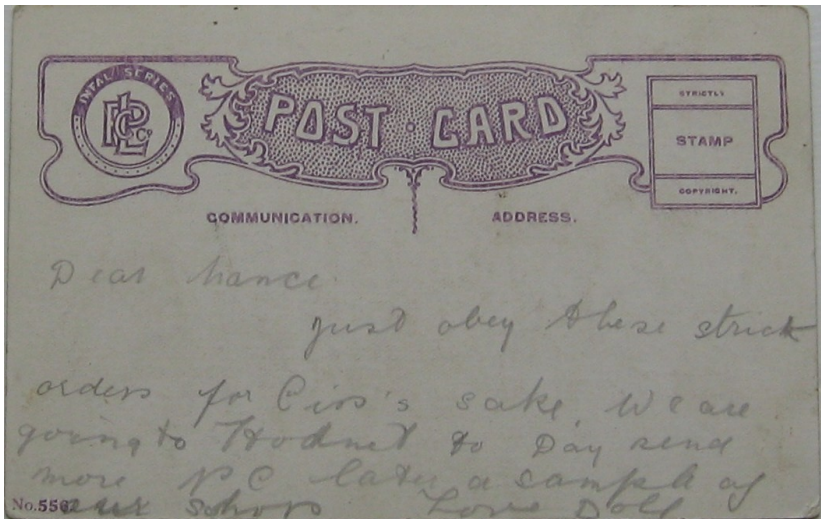 INFAL / SERIES
POST CARD
STRICTLY
STAMP
COPYRIGHT.
COMMUNICATION.
ADDRESS.
Dear Nance
just obey these strick
orders for Ciss's sake. We are
going to Hodnet to Day send
more P C later a sample of
our shops Love Doll
No.556